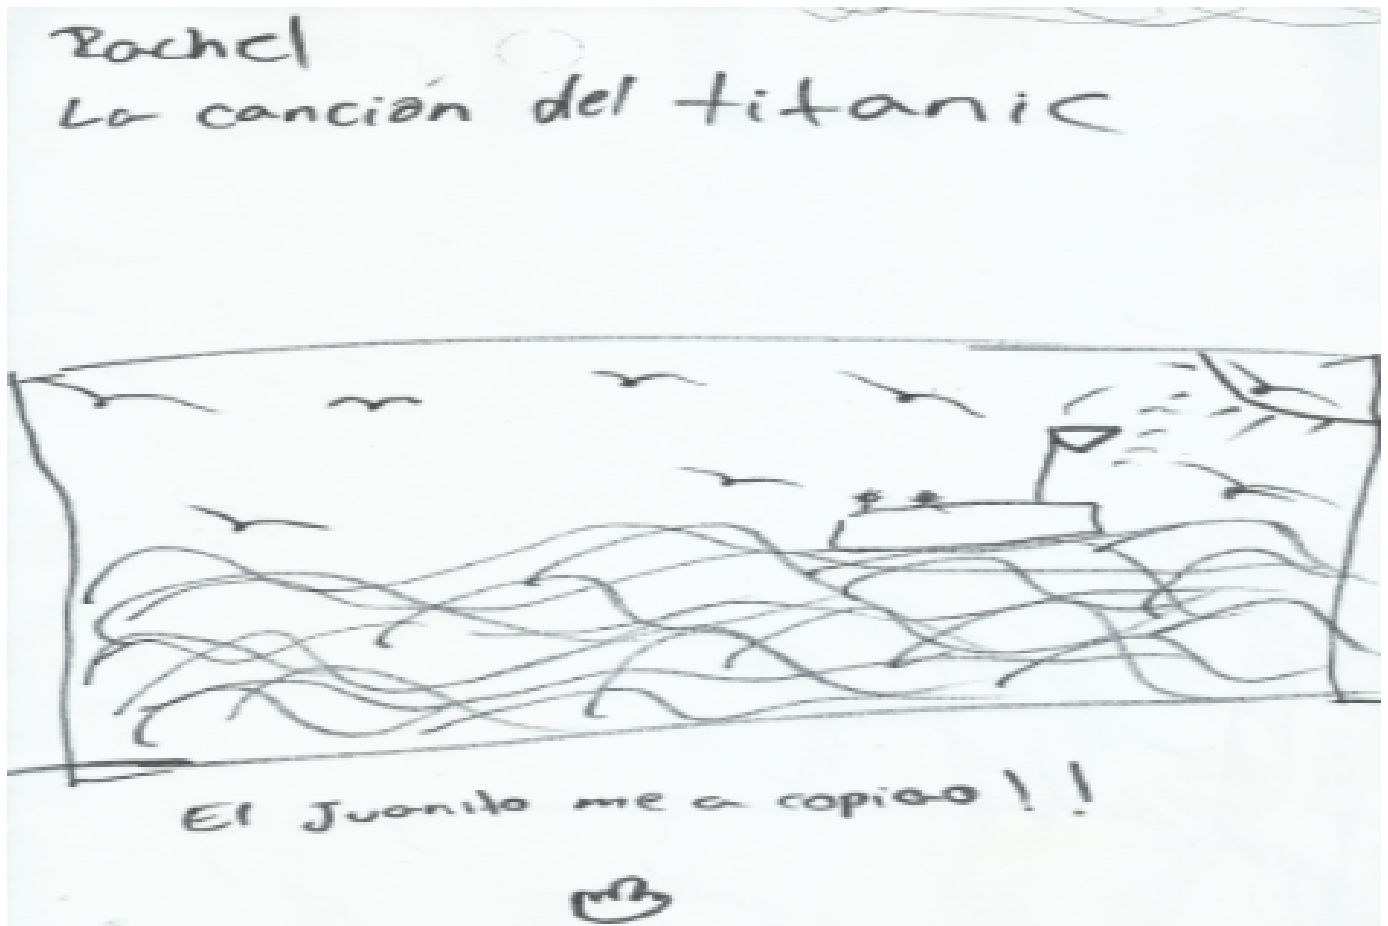 Rachel
La canción del titanic
El Juanito me a copiao!!